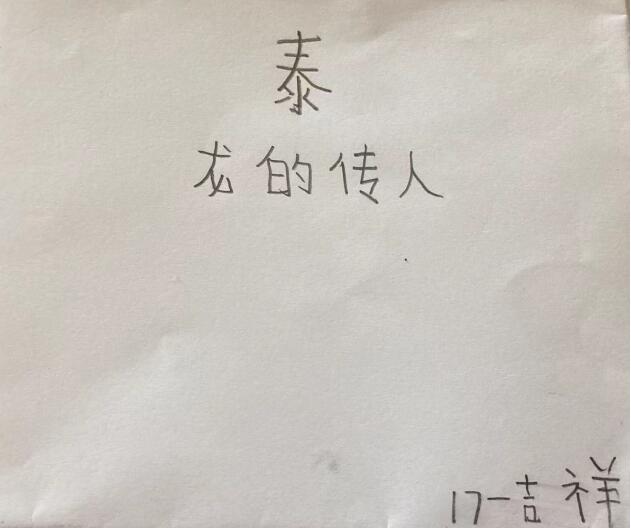 泰
龙的传人
17一吉祥